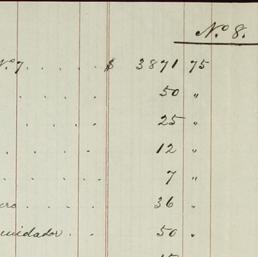 No. 8.
No. 7 . . . . . $ 3871 75
. . . . 50 "
. . . . 25 "
. . . . 12 "
. . . . . 7 "
. . . . 36 "
uidador . . 50 "